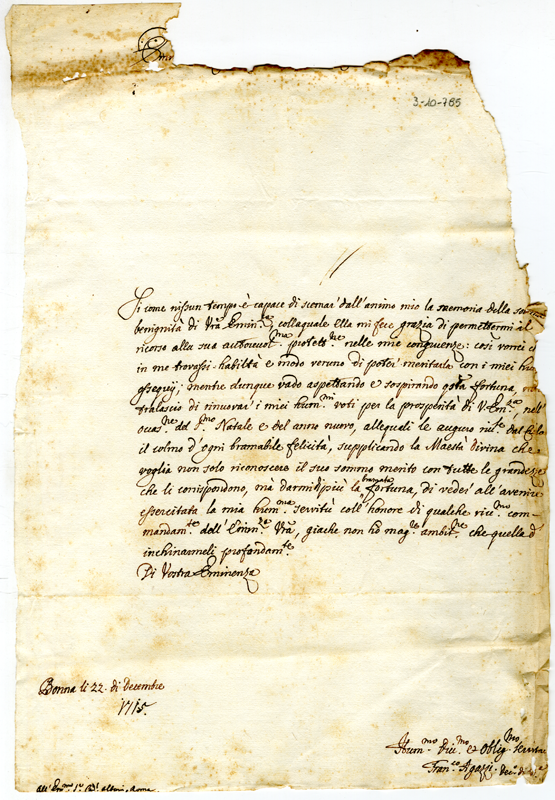 Em
3-10-785
Si come nissun tempo è capace di scemar' dall'animo mio la memoria della
benignità di Vrã Emin.za, collaquale Ella mi fece grazia di permettermi il
ricorso alla sua autorevol.ma protett.ne nelle mie congiunze: così vorrei ch'
in me trovassi habiltà e modo veruno di poter' meritarla con i miei
ossequij; mentre dunque vado aspettando e sospirando qstã fortuna, non
tralascio di rinuovar' i miei hum.mi voti per la prosperità di V. Em.za, nell'
ocas.ne del S.mo Natale e del anno nuovo, allequali le auguro dal Cielo
il colmo d'ogni bramabile felicità, supplicando la Maestà divina che
voglia non solo riconoscere il suo sommo merito con tutte le grandezze
che li corrispondono, mà darmi di più la bramata fortuna, di veder' all'avenire
essercitata la mia hum.ma servitù coll'honore di qualche riv.mo com-
mandam.to dell'Emin.za Vrã, giache non hò mag.re ambit.ne che quella d'
inchinarmeli profondam.te
Di Vostra Eminenza
Bonna li 22. di Decembre
1715.
Hum.mo Div.mo et Oblig.mo Servitor
Fran.co Agazzi
all' Em.mo S.r Albani, Roma